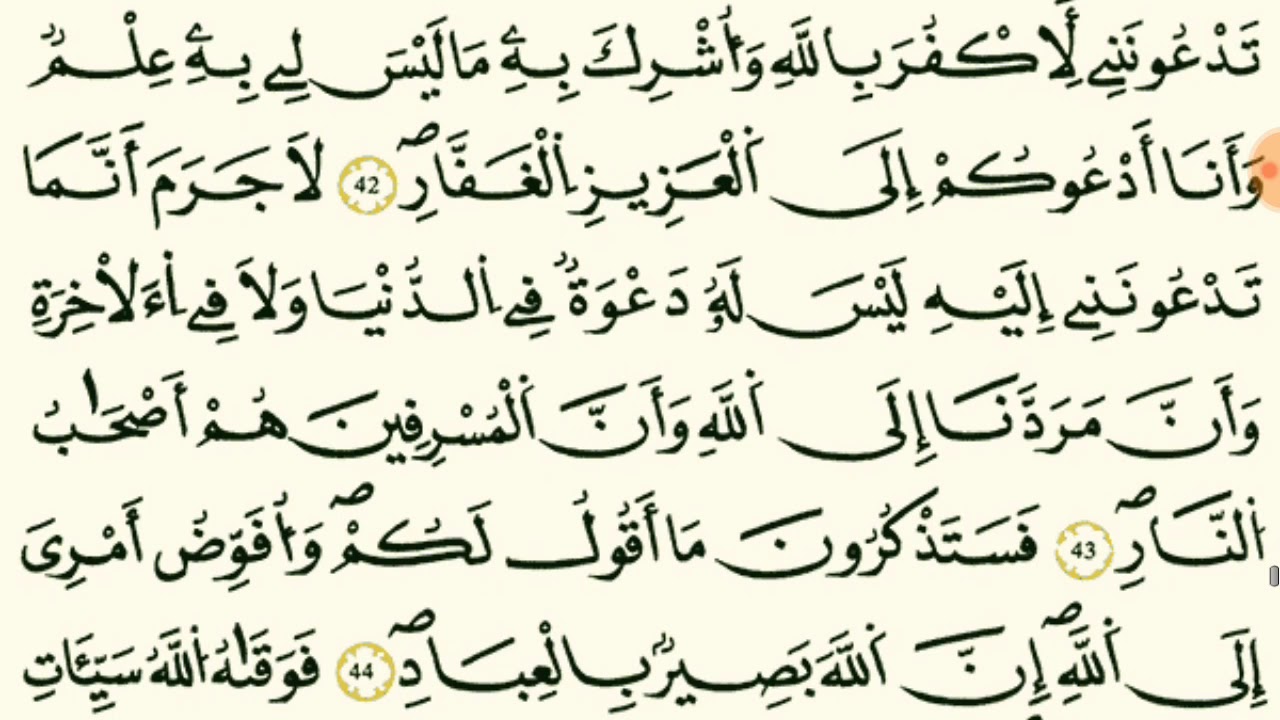 تَدْعُونَنِے لِأَكْفُرَ بِاللَّهِ وَأُشْرِكَ بِهِۦ مَا لَيْسَ لِے بِهِۦ عِلْمٌ
وَأَنَا أَدْعُوكُمْ إِلَى اَ۬لْعَزِيزِ اِ۬لْغَفَّٰرِۖ 42 لَا جَرَمَ أَنَّمَا
تَدْعُونَنِے إِلَيْهِ لَيْسَ لَهُۥ دَعْوَةٌ فِے اِ۬لدُّنْيَا وَلَا فِے اِ۬ءَلَاخِرَةِ
وَأَنَّ مَرَدَّنَا إِلَى اَ۬للَّهِ وَأَنَّ اَ۬لْمُسْرِفِينَ هُمْ أَصْحَٰبُ
اُ۬لنَّارِۖ 43 فَسَتَذْكُرُونَ مَا أَقُولُ لَكُمْۖ وَأُفَوِّضُ أَمْرِىَ
إِلَى اَ۬للَّهِۖ إِنَّ اَ۬للَّهَ بَصِيرٌۢ بِالْعِبَادِۖ 44 فَوَقَىٰهُ اُ۬للَّهُ سَيِّـَٔاتِ